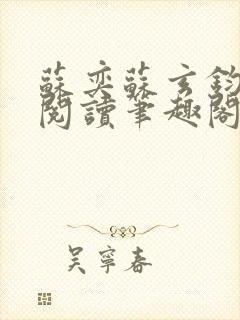 蘇奕蘇玄鈞
閱讀筆趣閣
吳寧春